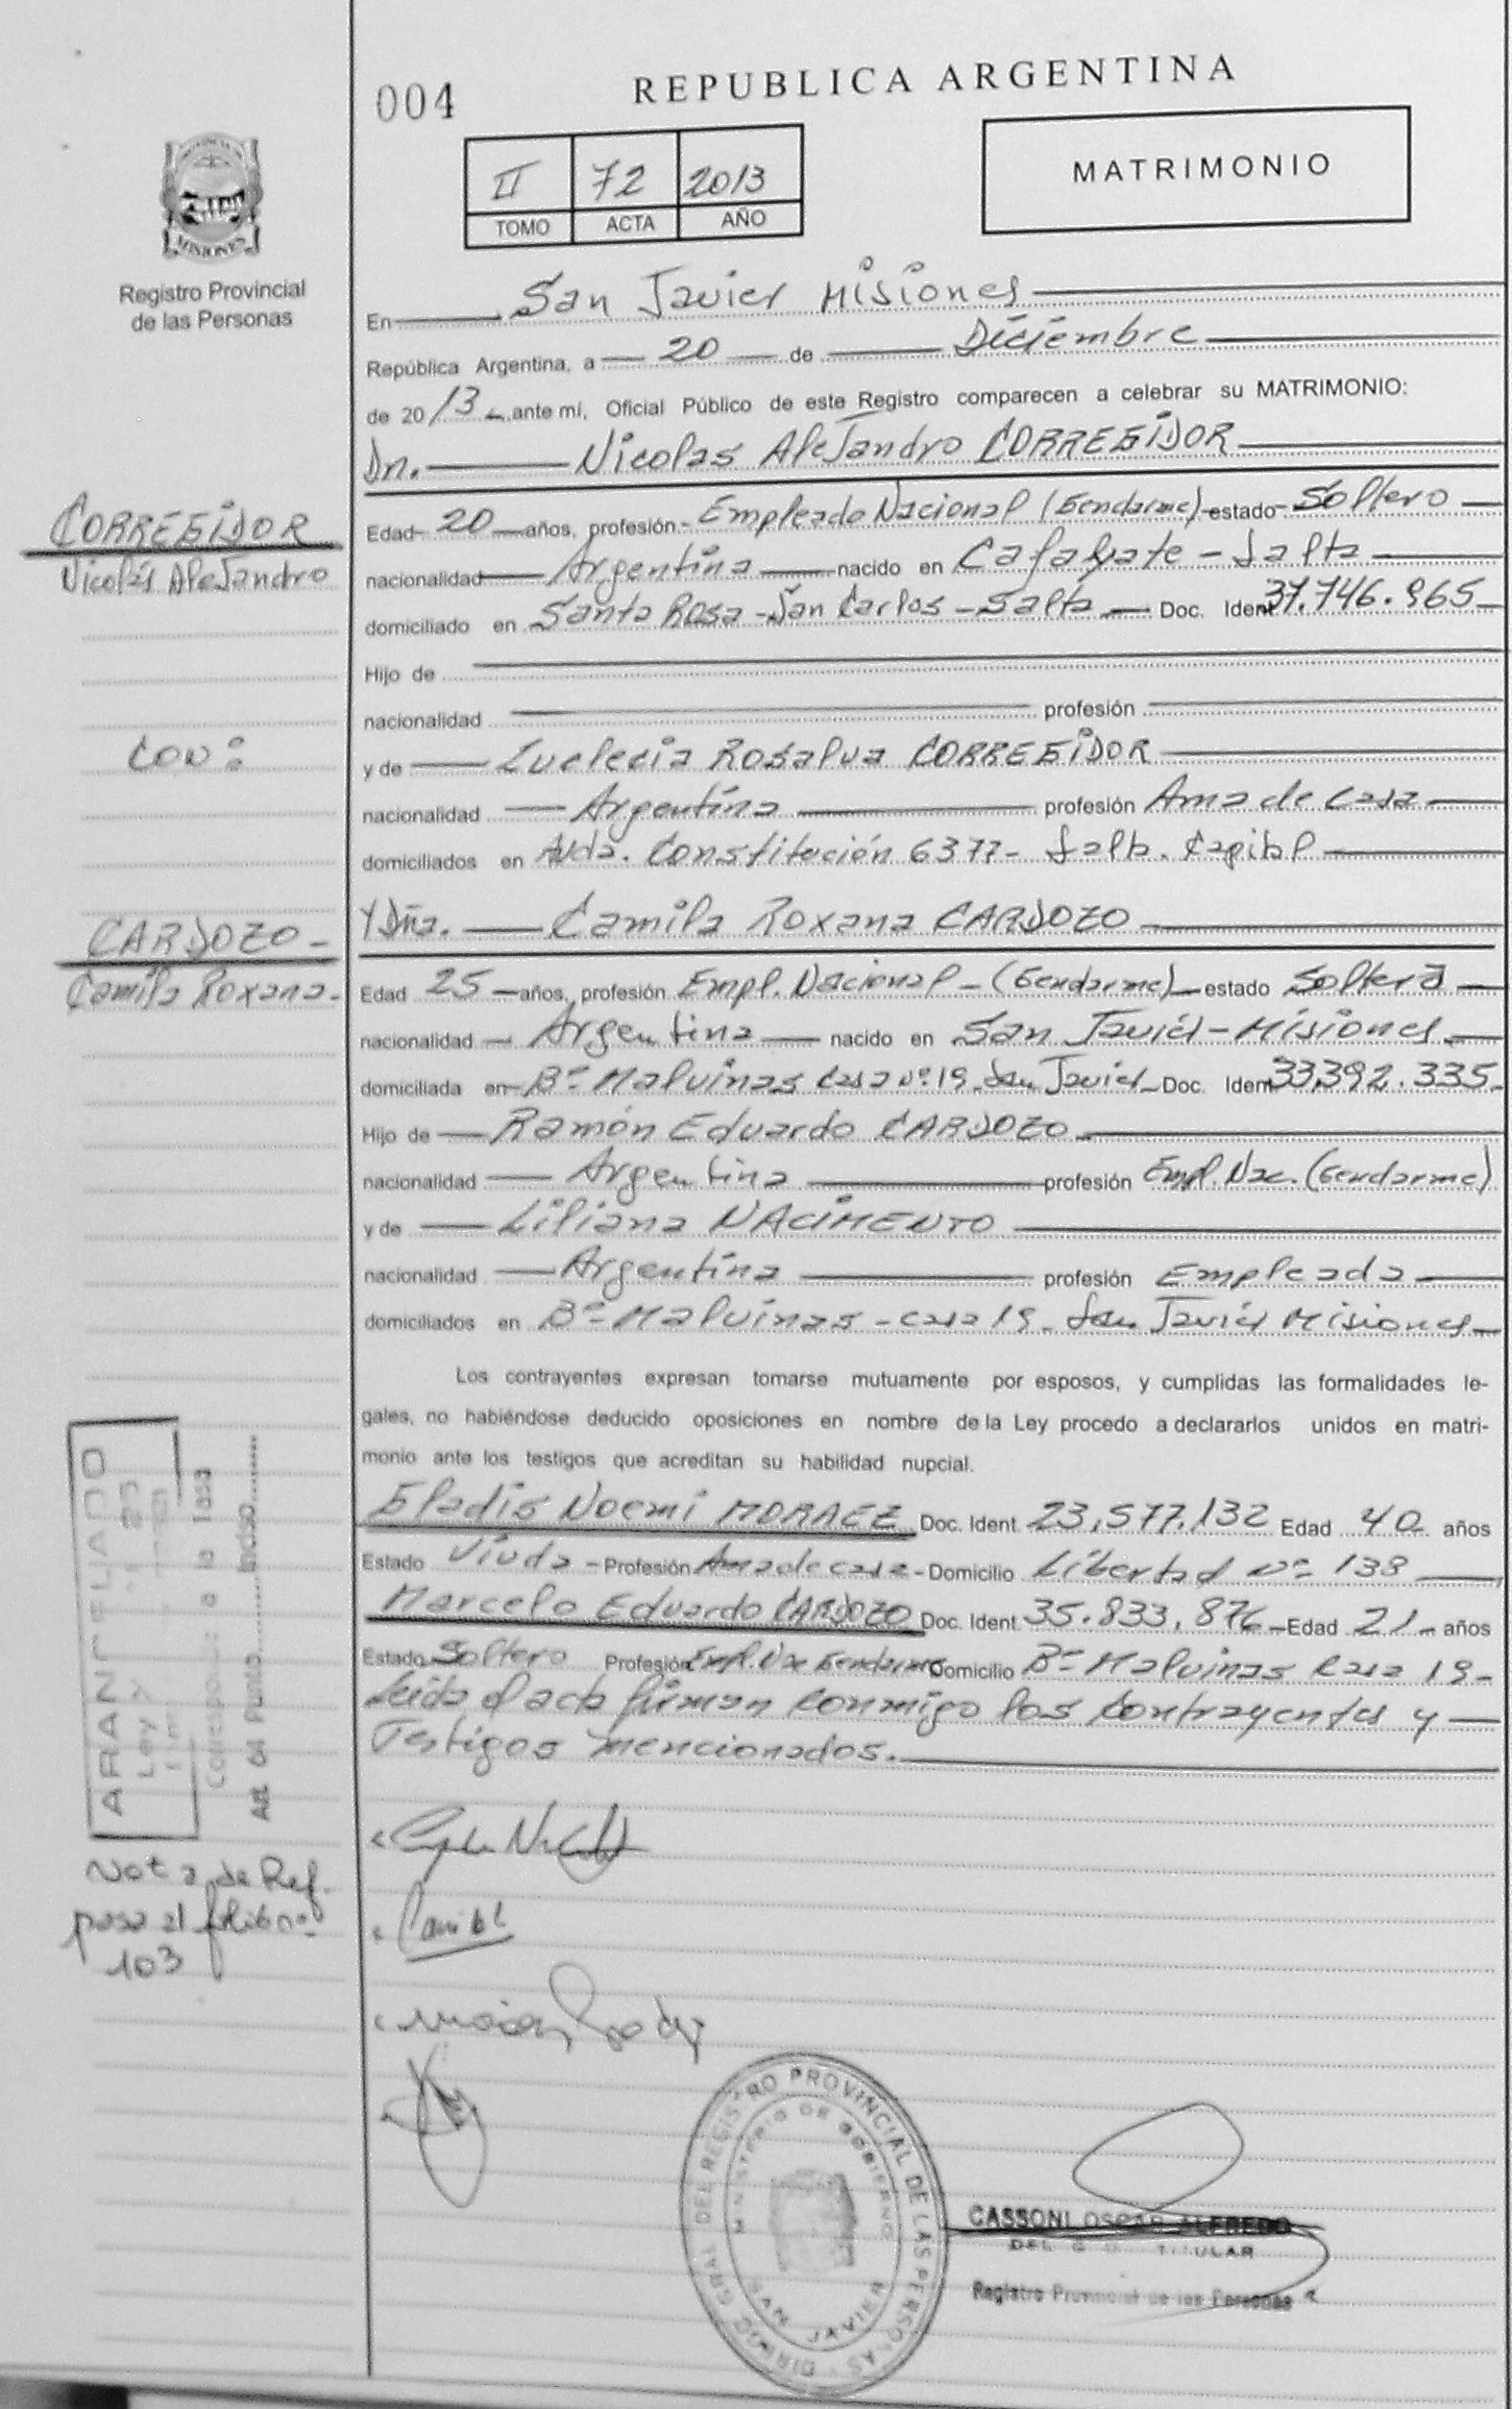 004
REPUBLICA ARGENTINA
II 72 2013
TOMO ACTA AÑO
MATRIMONIO
MISIONES
Registro Provincial
de las Personas
En San Javier Misiones
República Argentina, a 20 de Diciembre
de 2013 ante mí, Oficial Público de este Registro comparecen a celebrar su MATRIMONIO:
Dn. Nicolas Alejandro CORREGIDOR
CORREGIDOR
Nicolás Alejandro
Edad 20 años, profesión Empleado Nacional (Gendarme) estado Soltero
nacionalidad Argentina nacido en Cafayate - Salta
domiciliado en Santa Rosa - San Carlos - Salta Doc. Ident 37.746.965
Hijo de
nacionalidad profesión
con:
y de Rosalva CORREGIDOR
nacionalidad Argentina profesión Ama de Casa
domiciliados en Avda. Constitución 6377 - Salta. Capital
CARDOZO -
Camila Roxana -
Y Dña. Camila Roxana CARDOZO
Edad 25 años, profesión Empl. Nacional - (Gendarme) estado Soltera
nacionalidad Argentina nacido en San Javier - Misiones
domiciliada en Bº Malvinas Casa nº 19 San Javier Doc. Ident 33.392.335
Hijo de Ramón Eduardo CARDOZO
nacionalidad Argentina profesión Empl. Nac. (Gendarme)
y de Liliana NACIMENTO
nacionalidad Argentina profesión Empleada
domiciliados en Bº Malvinas - casa 19 - San Javier Misiones
Los contrayentes expresan tomarse mutuamente por esposos, y cumplidas las formalidades le-
gales, no habiéndose deducido oposiciones en nombre de la Ley procedo a declararlos unidos en matri-
monio ante los testigos que acreditan su habilidad nupcial.
Noemi Doc. Ident. 23.577.132 Edad 40 años
Estado Viuda - Profesión Ama de casa - Domicilio Libertad nº 138
Marcelo Eduardo CARDOZO Doc. Ident. 35.833.876 Edad 21 años
Estado Soltero Profesión Empl. Nac Gendarme Domicilio Bº Malvinas Casa 19 -
Leida el acta firman conmigo los contrayentes y
Testigos mencionados.
ARANCELADO
Ley
Corresponde a la Tasa
Art. 64 Punto Inciso
Nota de Ref.
pasa al folio nº
103
DIREC. GRAL. DEL REGISTRO PROVINCIAL DE LAS PERSONAS
MINISTERIO DE GOBIERNO
SAN JAVIER
CASSONI OSCAR ALFREDO
TITULAR
Registro Provincial de las Personas